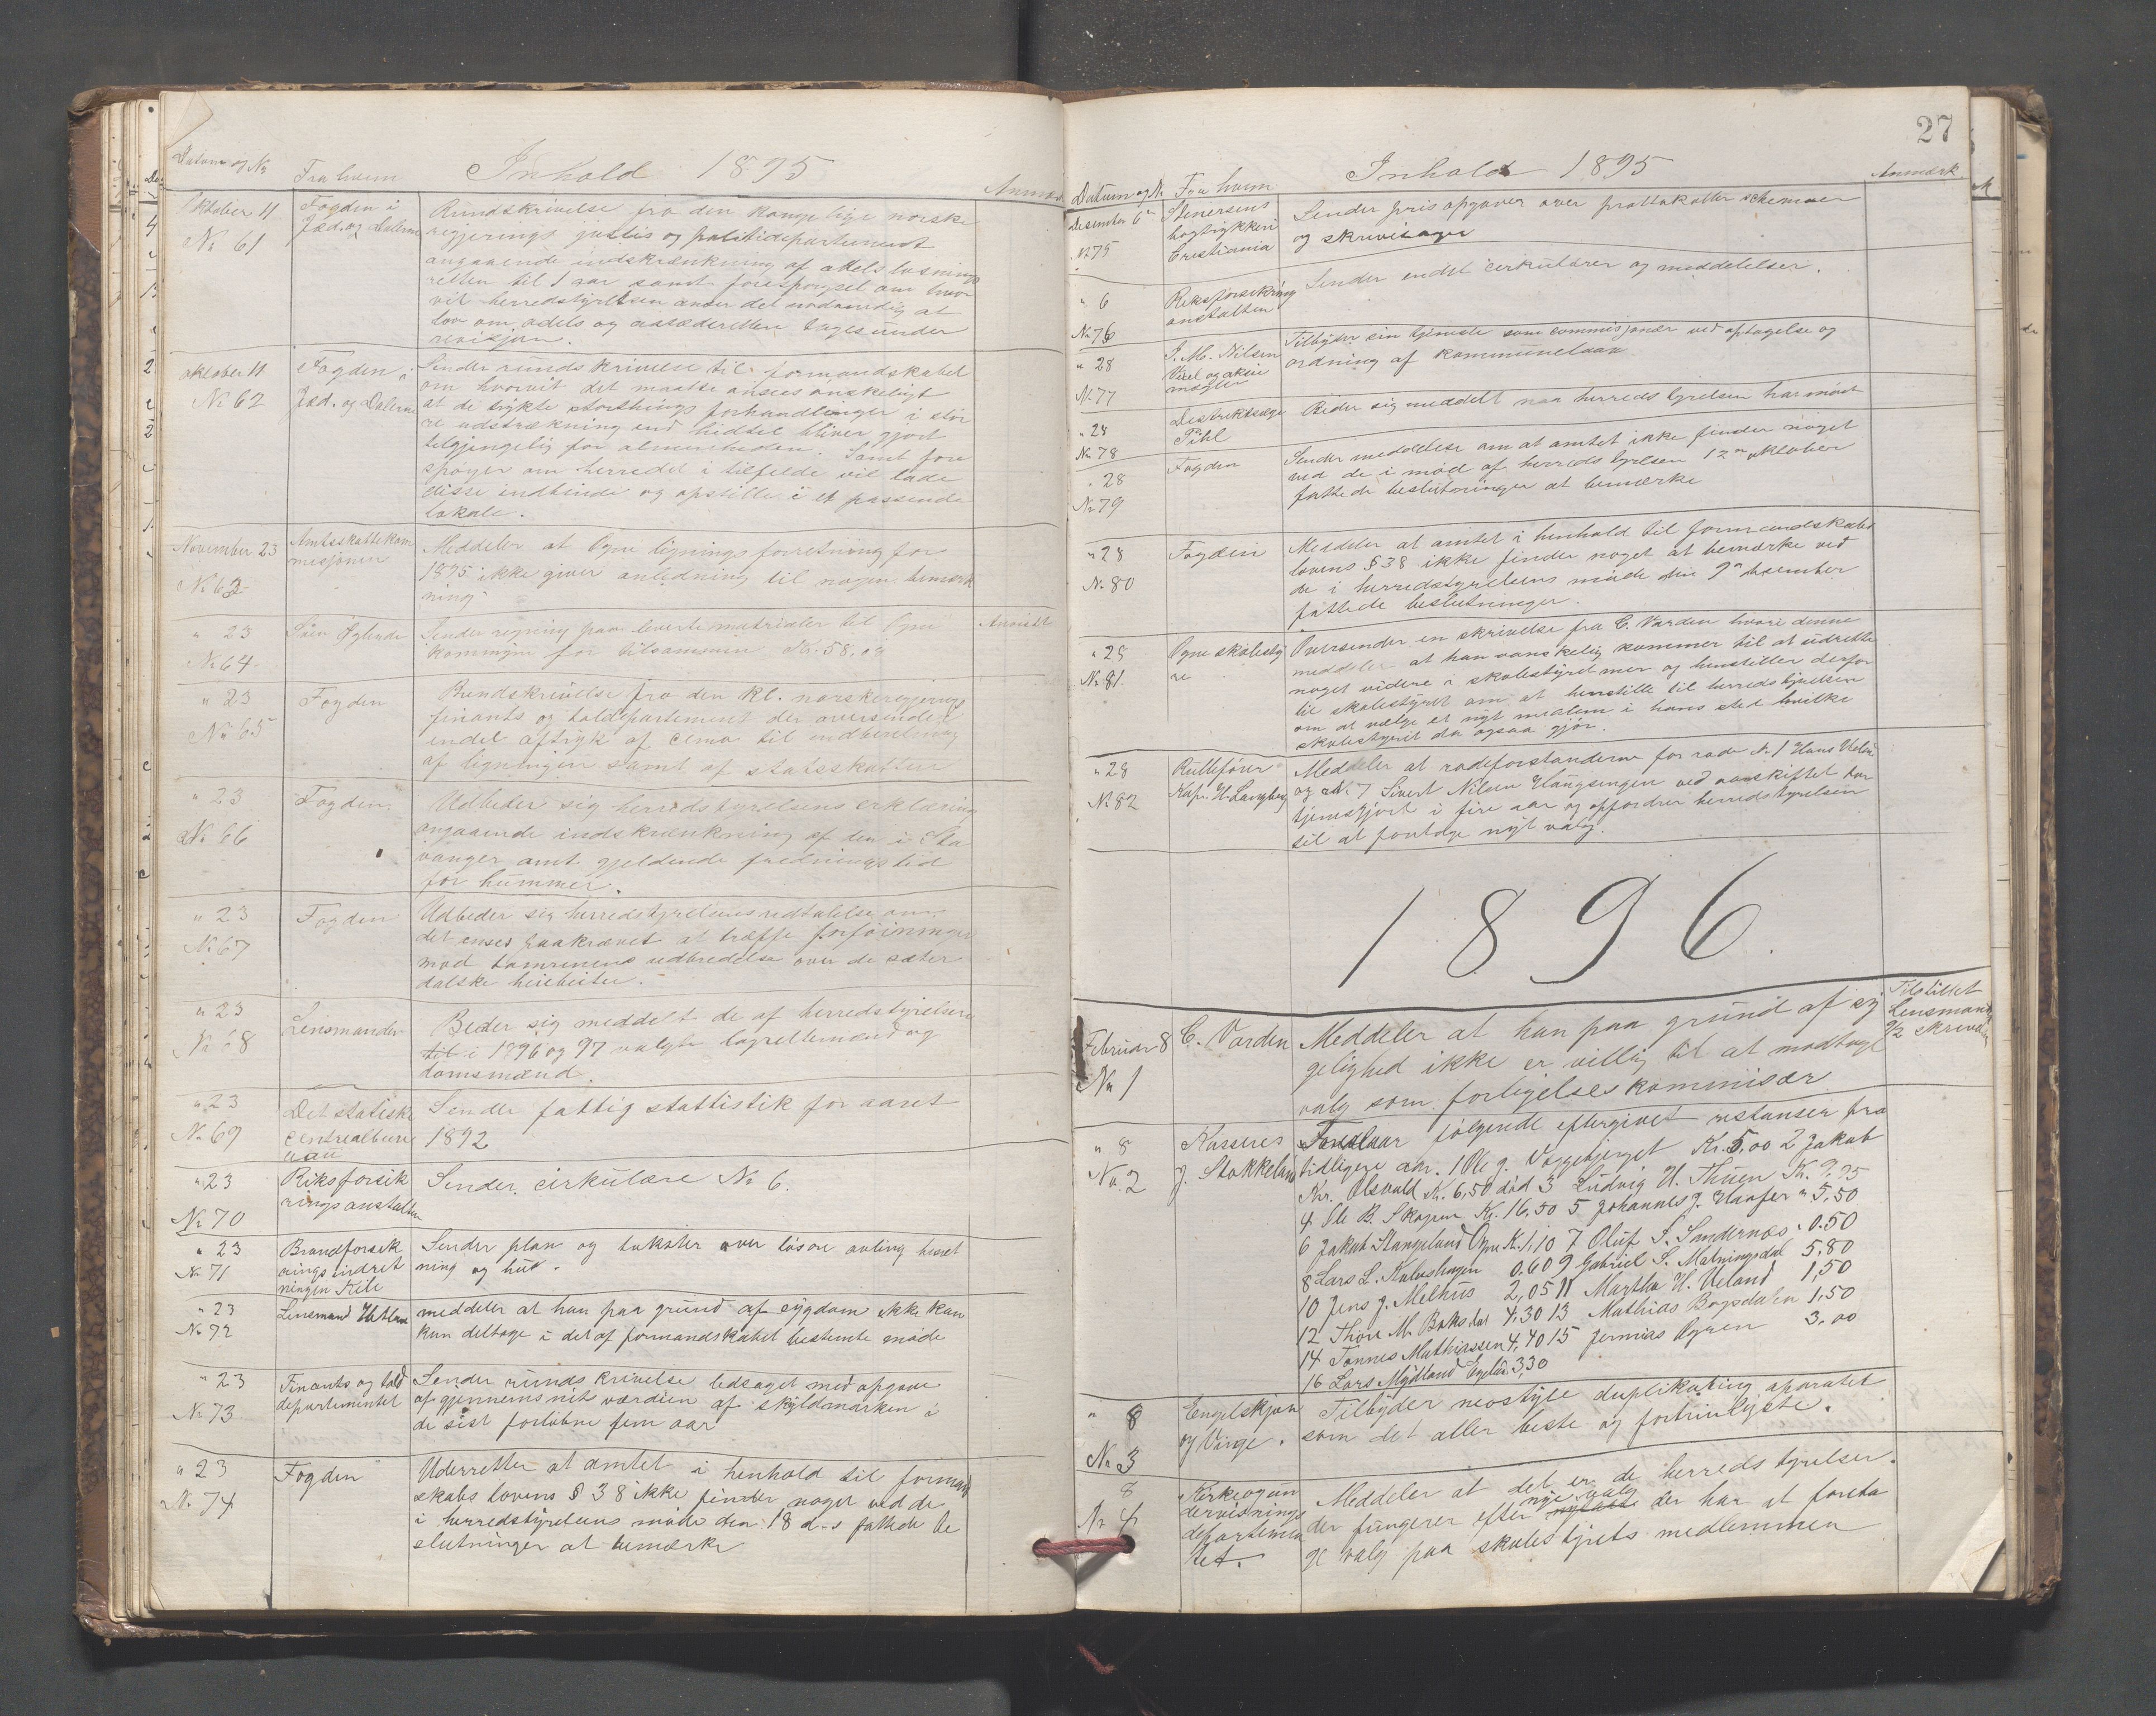 Datum og No
Fra hvem
Inhold 1895
Anmærk
Oktober 11
No 61
Fogden i
Jæd. og Dalerne
Rundskrivelse fra den kongelige norske
regjerings justis og politidepartement
angaaende indskrænkning af odels løsnings
retten til 1 aar samt forespørgsel om hvor
vit herredstyrelsen anser det nødvendig at
lov om odels og aasædesretten tages under
revisjon.
oktober 11
No 62
Fogden i
Jæd. og Dalerne
Sender rundskrivelse til formandskabet
om hvorvit det maatte ansees ønskeligt
at de trykte storthings forhandlinger i stør
re udstrækning end hidtil bliver gjort
tilgjengelig for almenheden. Samt fore
spørger om herredet i tilfelde vil lade
disse indbinde og opstille i et passende
lokale.
November 23
No 63
Amtsskattekom
misjonen
Meddeler at Ogne ligningsforretning for
1895 ikke giver anledning til nogen bemærk
ning
" 23
No 64
Sender regning paa leverte matrialer til Ogne
kommune for Kr. 58,04
Anvist
" 23
No 65
Fogden
Rundskrivelse fra den Kl. norske regjerings
finants og tolddepartement der oversender
endel aftryk af til indberetning
af ligningen samt af statsskatten
" 23
No 66
Fogden
Udbeder sig herredstyrelsens erklæring
angaaende indskrænkning af den i Sta
vanger amt gjeldende fredningstid
for hummer.
" 23
No 67
Fogden
Udbeder sig herredstyrelsens udtalelse om
det anses paakrævet at træffe forföininger
mod lamrenens udbredelse over de sæter
dalske heibeiter.
" 23
No 68
Lensmanden
Beder sig meddelt de af herredstyrelsen
til i 1896 og 97 valgte lagrettemænd og
domsmænd.
" 23
No 69
Det statiske
centralbure
uau
Sender fattig stattistik for aaret
1892
" 23
No 70
Riksforsik
ringsanstalten
Sender cirkulære No 6.
" 23
No 71
Brandforsik
ringsindret
ningen
Sender plan og takster over løsøre avling besæt
ning og hus.
" 23
No 72
Lensmand Hetland
meddeler at han paa grund af sygdom ikke kan
kun deltage i det af formandskabet bestemte møde
" 23
No 73
Finants og told
departementet
Sender rundskrivelse ledsaget med opgave
af gjennemsnits værdien af skyldmarken i
de sist forløbne fem aar
" 23
No 74
Fogden
Underretter at amtet i henhold til formand
skabs lovens § 38 ikke finder noget ved de
i herredstyrelsens møde den 18 d-s fattede be
slutninger at bemærke
27
Datum og No
Fra hvem
Inhold 1895
Anmærk.
Desember 6te
No 75
Stenersens
bogtrykkeri
Cristiania
Sender prisopgaver over prottokoller schemaer
og skrivesager
" 6
No 76
Riksforsikring
anstalten
Sender endel cirkulærer og meddelelser.
" 28
No 77
J. M. Nilsen
Vexel og aksie
mægler
Tilbyder sin tjeneste som commisjonær ved optagelse og
ordning af kommunelaan
" 28
No 78
Destriktslæge
Pihl
Beder sig meddelt naar herredstyrelsen har møde
" 28
No 79
Fogden
Sender meddelelse om at amtet ikke finder noget
ved de i mød af herredstyrelsen 12te oktober
fattede beslutninger at bemærke
" 28
No 80
Fogden
Meddeler at amtet i henhold til formandskabs
lovens § 38 ikke finder noget at bemærke ved
de i herredstyrelsens møde den 9de desember
fattede beslutninger.
" 28
No 81
Ogne skolesty
re
Oversender en skrivelse fra C. Varden hvori denne
meddeler at han vanskelig kommer til at udrette
noget videre i skolestyret mer og henstiller derfor
til skolestyret om at henstille til herredstyrelsen
om at vælge et nyt medlem i hans sted hvilke
skolestyret da ogsaa gjør.
" 28
No 82
Rullefører
Kap. H. Langberg
Meddeler at rodeforstanderne for rode No 1 Hans
og No 7 Sivert Nilsen Haugsengen ved aarskiftet har
tjenestgjort i fire aar og opfordrer herredstyrelsen
til at foretage nyt valg.
1896.
Februar 8
No 1
C. Varden
Meddeler at han paa grund af sy
gelighed ikke er villig til at modtage
valg som forligelseskommisær
Tilstillet
Lensmand
9/2 skrivelsen
" 8
No 2
Kasserer
J. Stokkeland
Foreslaar følgende eftergivet restanser fra
tidligere aar. 1 Ole J. Kr. 5,00 2 Jakob
Kr. Olsvold Kr. 6,50 död 3 Ludvig H. Thuen Kr. 9,95
4 Ole B. Skogen Kr. 16,50 5 Johannes J. " 5,50
6 Jakob Stangeland Ogne Kr. 1,10 7 Oluf S. Sandernæs " 0.50
8 Lars L. Kalvshagen 0,60 9 Gabriel S. Malningsdal 5,80
10 Jens J. Melhus 2,05 11 Martha H. Ueland 1,50
12 Thore M. 4,30 13 Mathias Bogsdalen 1,50
14 Tønnes Mathiassen 4,40 15 Jermias Ognen 3,00
16 Lars Mydland 3,30
" 8
No 3
Engelskjøn
og Vinge.
Tilbyder neostyle duplikating aparatet
som det aller beste og fortrinligste.
8
No 4
Kirke og un
dervisnings
departemen
tet.
Meddeler at det er de herredstyrelser.
der fungerer efter nye valg der har at foreta
ge valg paa skolestyrets medlemmer